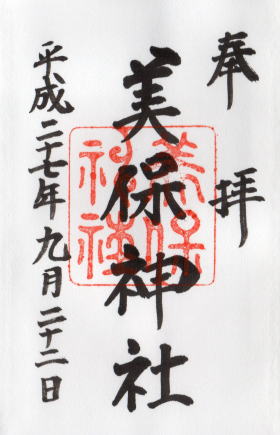 奉拝
美保神社
美保
神社
平成二十七年九月二十二日